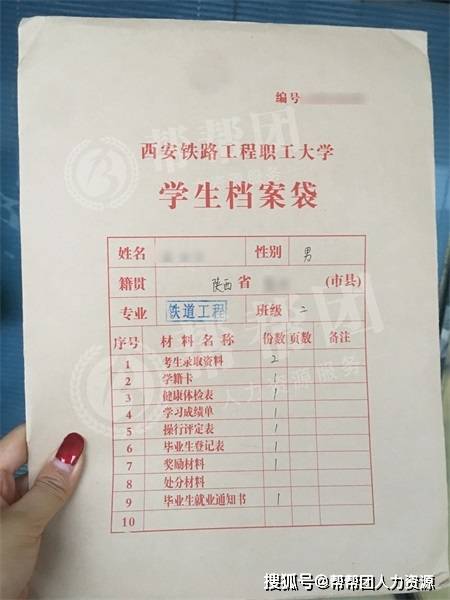 编号
西安铁路工程职工大学
学生档案袋
姓名 性别 男
籍贯 陕西 省 (市县)
专业 铁道工程 班级 二
序号 材料名称 份数 页数 备注
1 考生录取资料 2
2 学籍卡 1
3 健康体检表 1
4 学习成绩单 1
5 操行评定表 1
6 毕业生登记表 1
7 奖励材料 1
8 处分材料
9 毕业生就业通知书 1
10
帮帮团
帮帮团
人力资源服务
搜狐号@帮帮团人力资源